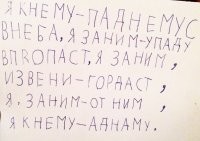 Я КНЕМУ-ПАДНЕМУС
ВНЕБА, Я ЗАНИМ-УПАДУ
ВПРОПАСТ, Я ЗАНИМ,
ИЗВЕНИ-ГОРДАСТ,
Я, ЗАНИМ-ОТ НИМ,
Я КНЕМУ-АДНАМУ.